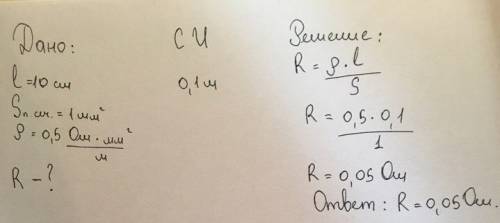 Дано:
l = 10 см
Sп.сч. = 1 мм²
ρ = 0,5 Ом · мм² / м
R – ?
СИ
0,1 м
Решение:
R = ρ · l / S
R = 0,5 · 0,1 / 1
R = 0,05 Ом
Ответ: R = 0,05 Ом.